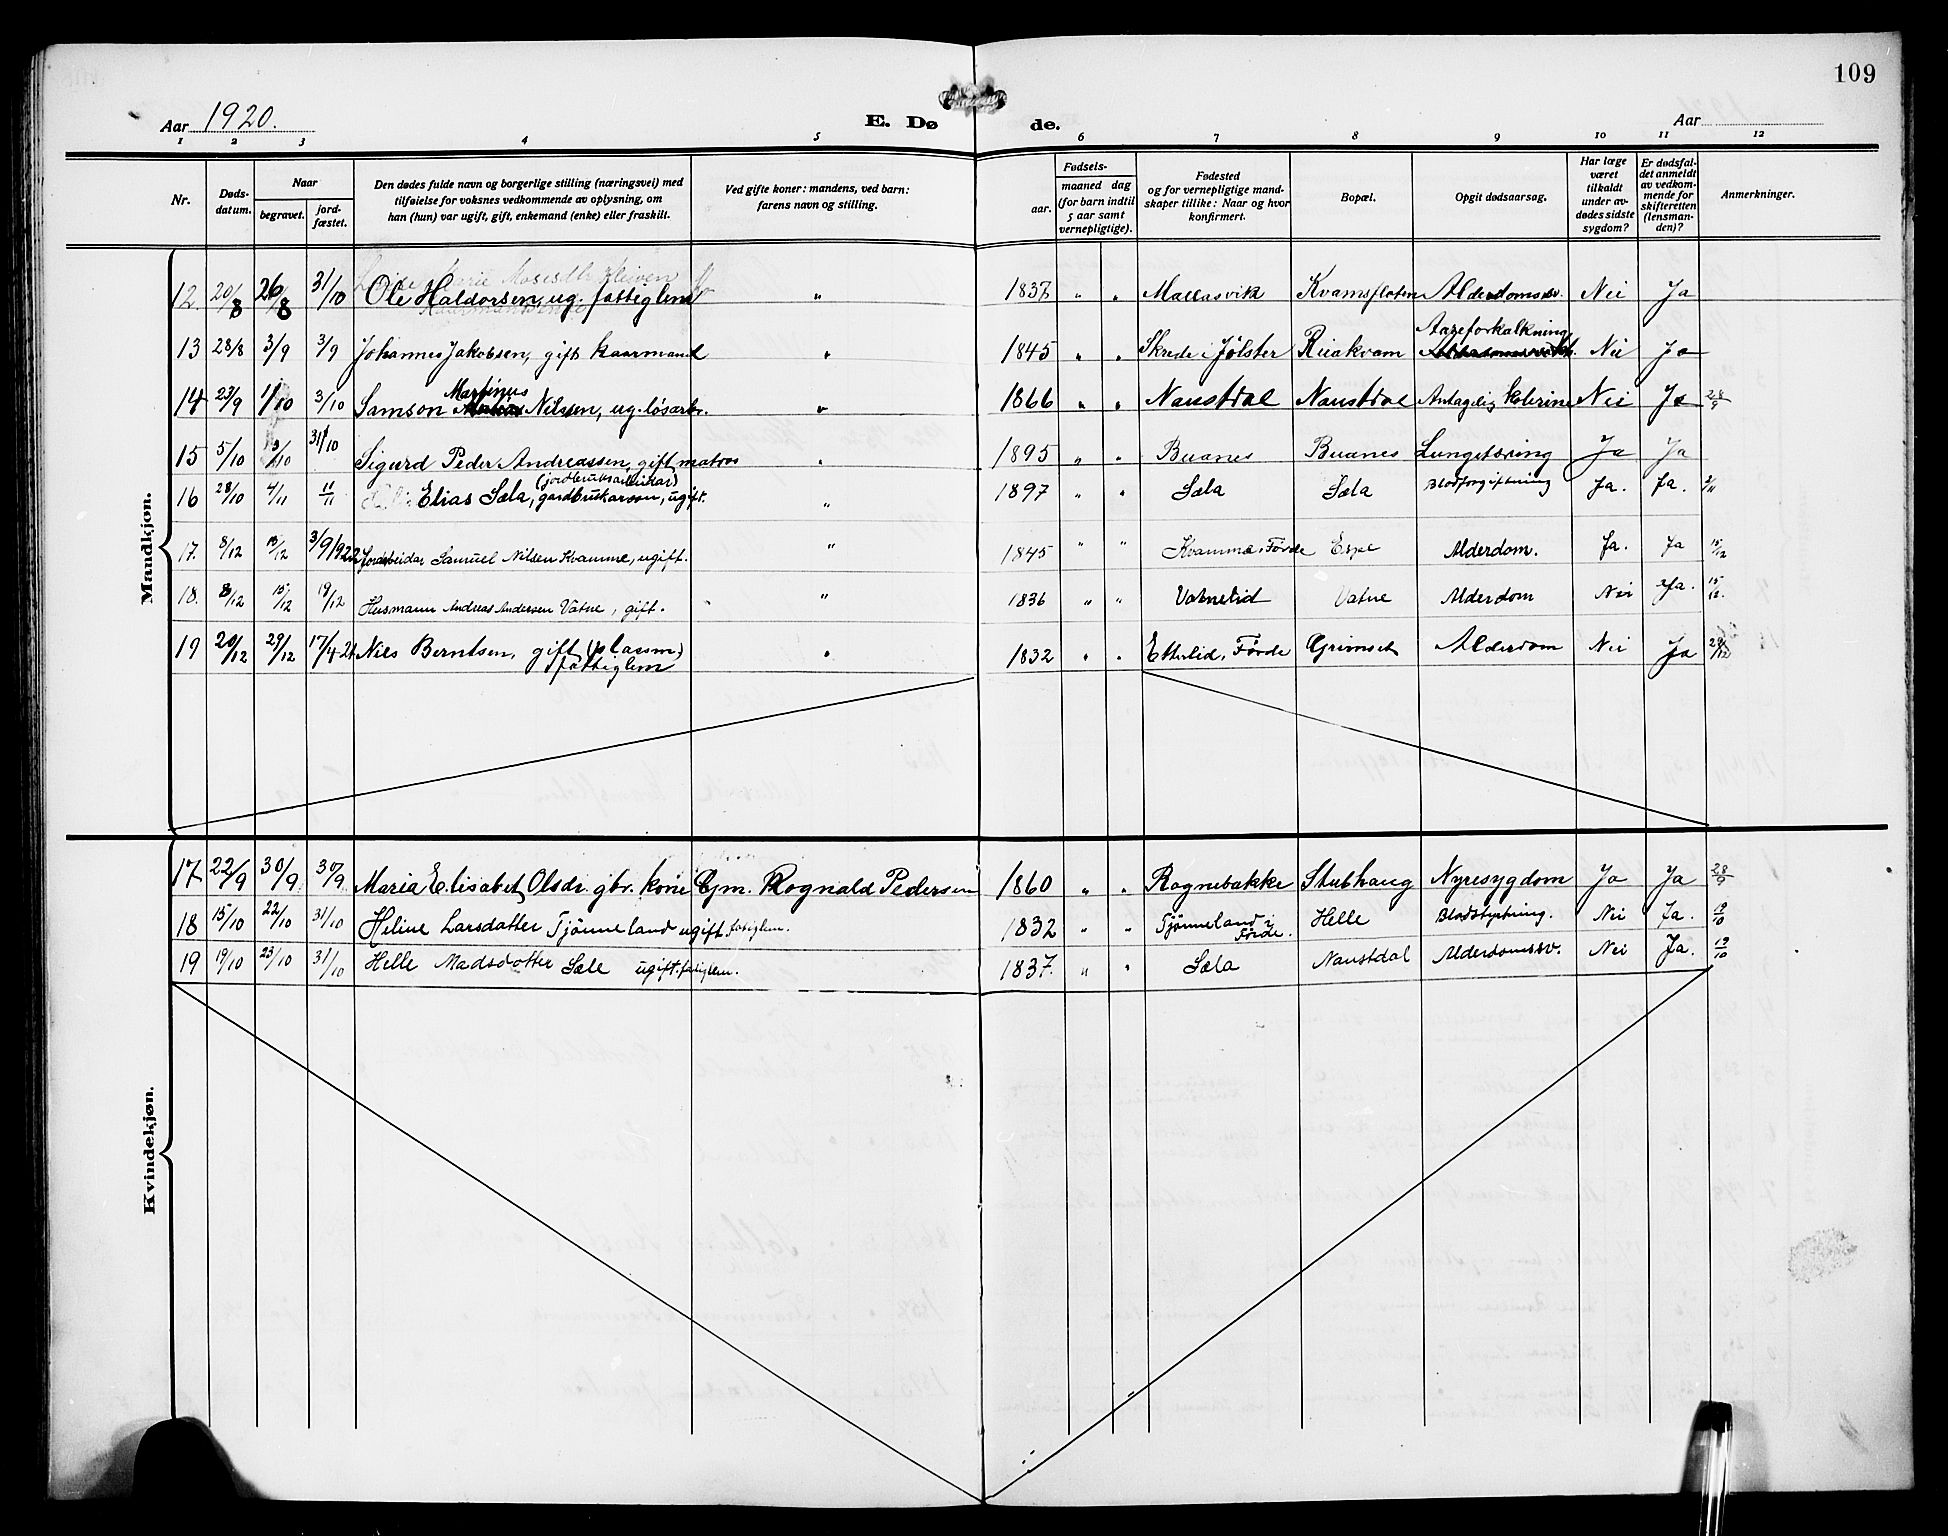 109
Aar 1920.
E. Dø de.
Aar
1 2 3 4 5 6 7 8 9 10 11 12
Nr.
Døds-
datum.
Naar
begravet.
jord-
fæstet.
Den dødes fulde navn og borgerlige stilling (næringsvei) med
tilføielse for voksnes vedkommende av oplysning, om
han (hun) var ugift, gift, enkemand (enke) eller fraskilt.
Ved gifte koner: mandens, ved barn:
farens navn og stilling.
Fødsels-
aar.
maaned dag
(for barn indtil
5 aar samt
vernepligtige).
Fødested
og for vernepligtige mand-
skaper tillike: Naar og hvor
konfirmert.
Bopæl.
Opgit dødsaarsag.
Har læge
været
tilkaldt
under av-
dødes sidste
sygdom?
Er dødsfal-
det anmeldt
av vedkom-
mende for
skifteretten
(lensman-
den)?
Anmerkninger.
Mandkjøn.
12 20/8 26/8 31/10 Ole Haldorsen, ug. fattiglem " 1837 " " Kvamsfloten Alderdomssv. Nei Ja
13 28/8 3/9 3/9 Johannes Jakobsen, gift kaarmand " 1845 " " Skrede i Jølster Aareforkalkning Nei Ja
14 23/9 1/10 3/10 Samson Martinus Nilsen, ug. løsarb. " 1866 " " Naustdal Naustdal Antagelig kolerine Nei Ja 28/9
15 5/10 31/10 Sigurd Peder Andreassen, gift matros " 1895 " " Buanes Buanes Lungetæring Ja Ja
16 28/10 4/11 11/11 Elias Sæla, (jordbruksarbeidar) gardbrukarson, ugift. " 1897 " " Sæla Sæla Blodforgiftning Ja. Ja. 2/11
17. 8/12 15/12 3/9 1922 Jordarbeidar Samuel Nilsen Kvamme, ugift. " 1845 " " Kvamme, Førde Espe Alderdom. Ja. Ja 15/12
18. 8/12 15/12 19/12 Husmann Andreas Andersen Vatne, gift. " 1836 " " Vatnelid Vatne Alderdom Nei Ja. 15/12.
19 20/12 29/12 17/4 21 Nils Berntsen, gift (plassm) fattiglem " 1832 " " Etterlid, Førde Grimset Alderdom Nei Ja 29/12
Kvindekjøn.
17 22/9 30/9 30/9 Maria Elisabet Olsdr. gbr. kone Gm. Rognald Pedersen 1860 " " Rognebakke Stubhaug Nyresygdom Ja Ja 28/9
18 15/10 22/10 31/10 Heline Larsdatter Tjønneland ugift fatiglem. 1832 " " Tjønneland i Førde. Helle Blodstyrtning. Nei Ja. 19/10
19 19/10 23/10 31/10 Helle Madsdotter Sæle ugift. fatiglem. 1837. " " Sæla Naustdal Alderdomssv. Nei Ja. 19/10